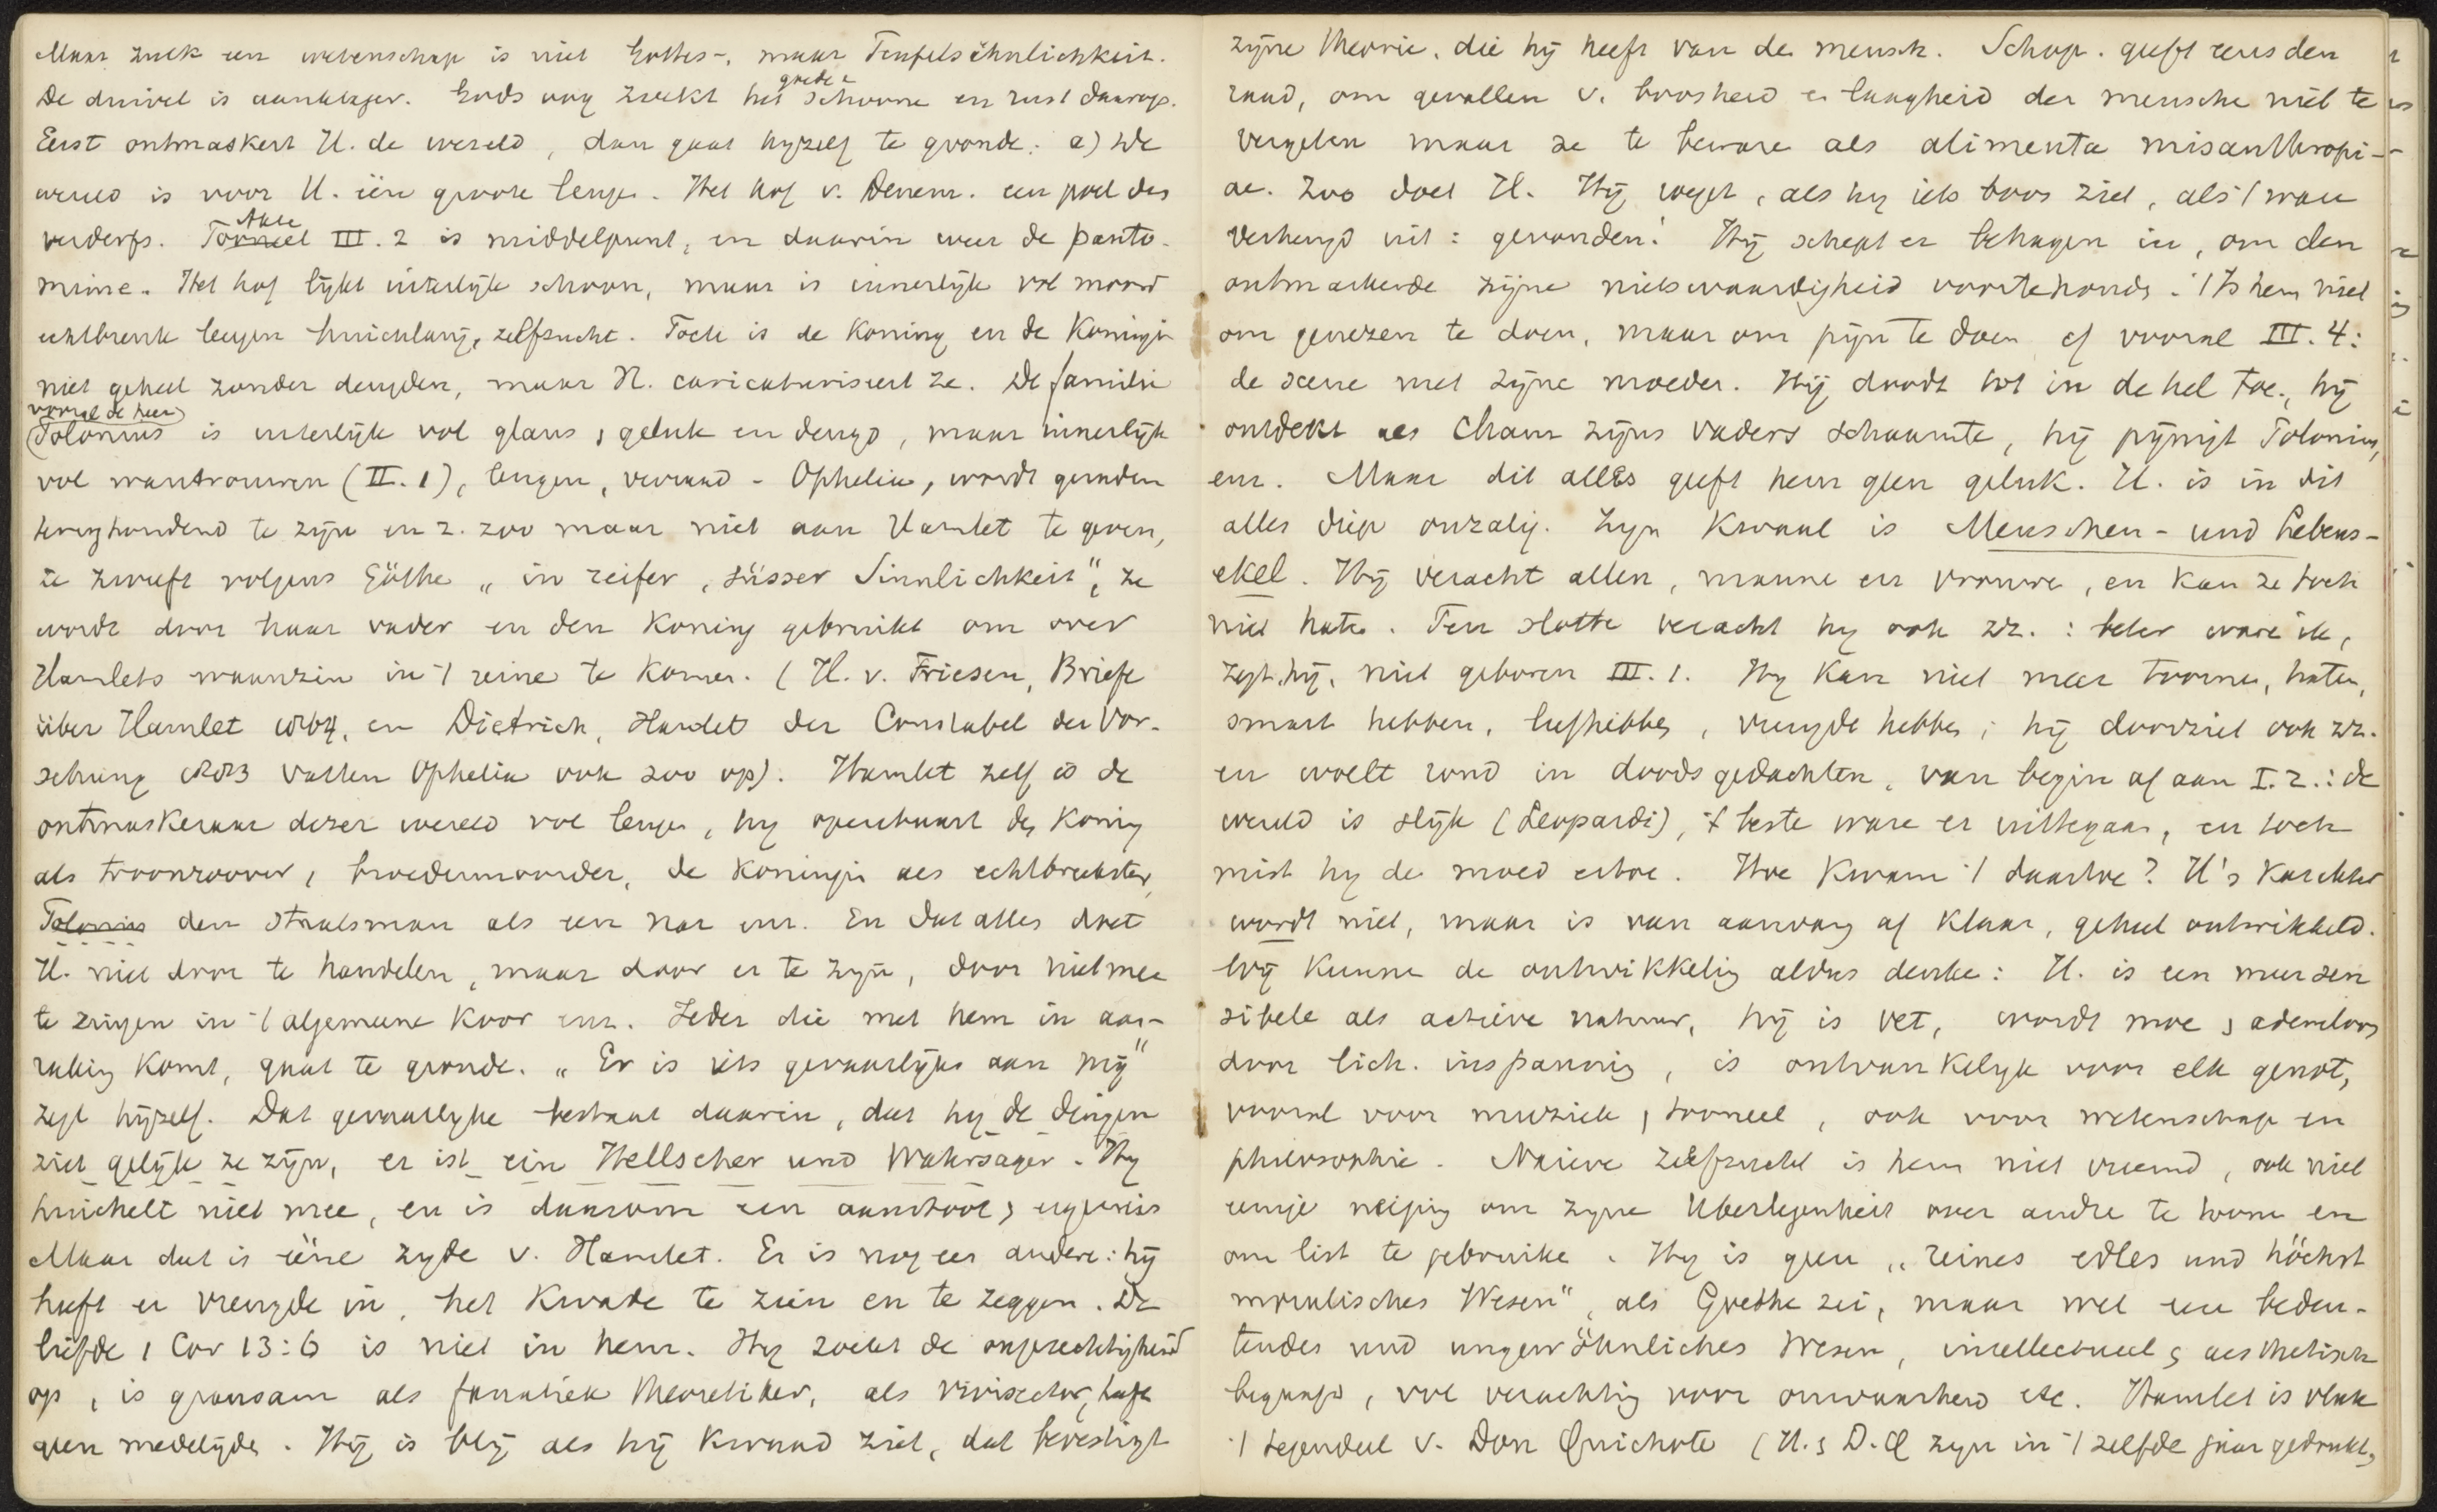 Maar zulk een wetenschap is niet Gottes-, maar Teufelsähnlichkeit.
De duivel is aanklager. Gods oog zoekt het goede & schoone en rust daarop.
Eerst ontmaskert H. de wereld, dan gaat hijzelf te gronde: a) De
wereld is voor H. ééne groote leugen. Het hof v. Denem. een poel des
verderfs. Tooneel Akte III. 2 is middelpunt, en daarin weer de panto-
mime. Het hof lijkt uiterlijk schoon, maar is innerlijk vol moord
echtbreuk leugen huichelarij, zelfzucht. Toch is de Koning en de Koningin
niet geheel zonder deugden, maar H. caricaturiseert ze. De familie
(vooral de heer)
Polonius is uiterlijk vol glans, geluk en deugd, maar innerlijk
vol wantrouwen (II. 1), leugen, verraad - Ophelia, wordt geraden
terughoudend te zijn en z. zoo maar niet aan Hamlet te geven,
ze zweeft volgens Göthe „in reifer, süsser Sinnlichkeit", ze
wordt door haar vader en den Koning gebruikt om over
Hamlets waanzin in 't reine te komen. (H. v. Friesen, Briefe
über Hamlet 1864, en Dietrich, Hamlet der Constabel der Vor-
sehung 1883 vatten Ophelia ook zoo op). Hamlet zelf is de
ontmaskeraar dezer wereld vol leugen, hij openbaart den Koning
als troonroover, broedermoorder, de Koningin als echtbreekster,
Polonius den Staatsman als een nar enz. En dat alles doet
H. niet door te handelen, maar door er te zijn, door niet mee
te zingen in 't algemeene koor enz. Ieder die met hem in aan-
raking komt, gaat te gronde. „Er is iets gevaarlijks aan mij"
zegt hijzelf. Dat gevaarlijke bestaat daarin, dat hij de dingen
ziet gelijk ze zijn, er ist ein Hellseher und Wahrsager. Hij
huichelt niet mee, en is daarom een aanstoot & ergernis
Maar dat is ééne zijde v. Hamlet. Er is nog een andere: hij
heeft er vreugde in, het kwade te zien en te zeggen. De
liefde 1 Cor 13:6 is niet in hem. Hij zoekt de ongerechtigheid
op, is grausam als fanatiek theoretiker, als vivisector, heeft
geen medelijden. Hij is blij als hij kwaad ziet, dat bevestigt
zijne theorie, die hij heeft van de mensch. Schop. geeft eens den
raad, om gevallen v. boosheid en laagheid der mensche niet te
vergeten maar ze te beware als alimenta misanthropi-
ae. Zoo doet H. Hij roept, als hij iets boos ziet, als 't ware
verheugd uit: gevonden! Hij schept er behagen in, om den
ontmaskerde zijne nietswaardigheid voortehouden. 't Is hem niet
om genezen te doen, maar om pijn te doen cf vooral III. 4:
de scene met zijne moeder. Hij doodt tot in de hel toe., hij
ontdekt als Cham zijns vaders schaamte, hij pijnigt Polonius,
enz. Maar dit alles geeft hem geen geluk. H. is in dit
alles diep onzalig. Zijn kwaal is Menschen- und Lebens-
ekel. Hij veracht allen, manne en vrouwe, en kan ze toch
niet hate. Ten slotte veracht hij ook zz.: beter ware ik,
zegt hij, niet geboren III. 1. Hij kan niet meer toorne, haten,
smart hebben, liefhebbe, vreugde hebbe; hij doorziet ook zz.
en woelt rond in doodsgedachten, van begin af aan I. 2.: de
wereld is slijk (Leopardi), 't beste ware er uittegaan, en toch
mist hij de moed ertoe. Hoe kwam 't daartoe? H's karakter
wordt niet, maar is van aanvang af klaar, geheel ontwikkeld.
Wij kunne de ontwikkeling aldus denke: H. is een meer sen
sibele als actieve natuur, hij is vet, wordt moe & ademloos
door lich. inspanning, is ontvankelijk voor elk genot,
vooral voor muziek, tooneel, ook voor wetenschap en
philosophie. Naieve zelfzucht is hem niet vreemd, ook niet
eenige neiging om zijne Uberlegenheit over andre te toone en
om list te gebruike. Hij is geen „reines edles und höchst
moralisches Wesen", als Goethe zei, maar wel een bedeu-
tendes und ungewöhnliches Wesen, intellectueel & aesthetisch
begaafd, vol verachting voor onwaarheid etc. Hamlet is vlak
't tegendeel v. Don Quichote (H. & D.Q zijn in 't zelfde jaar gedrukt,